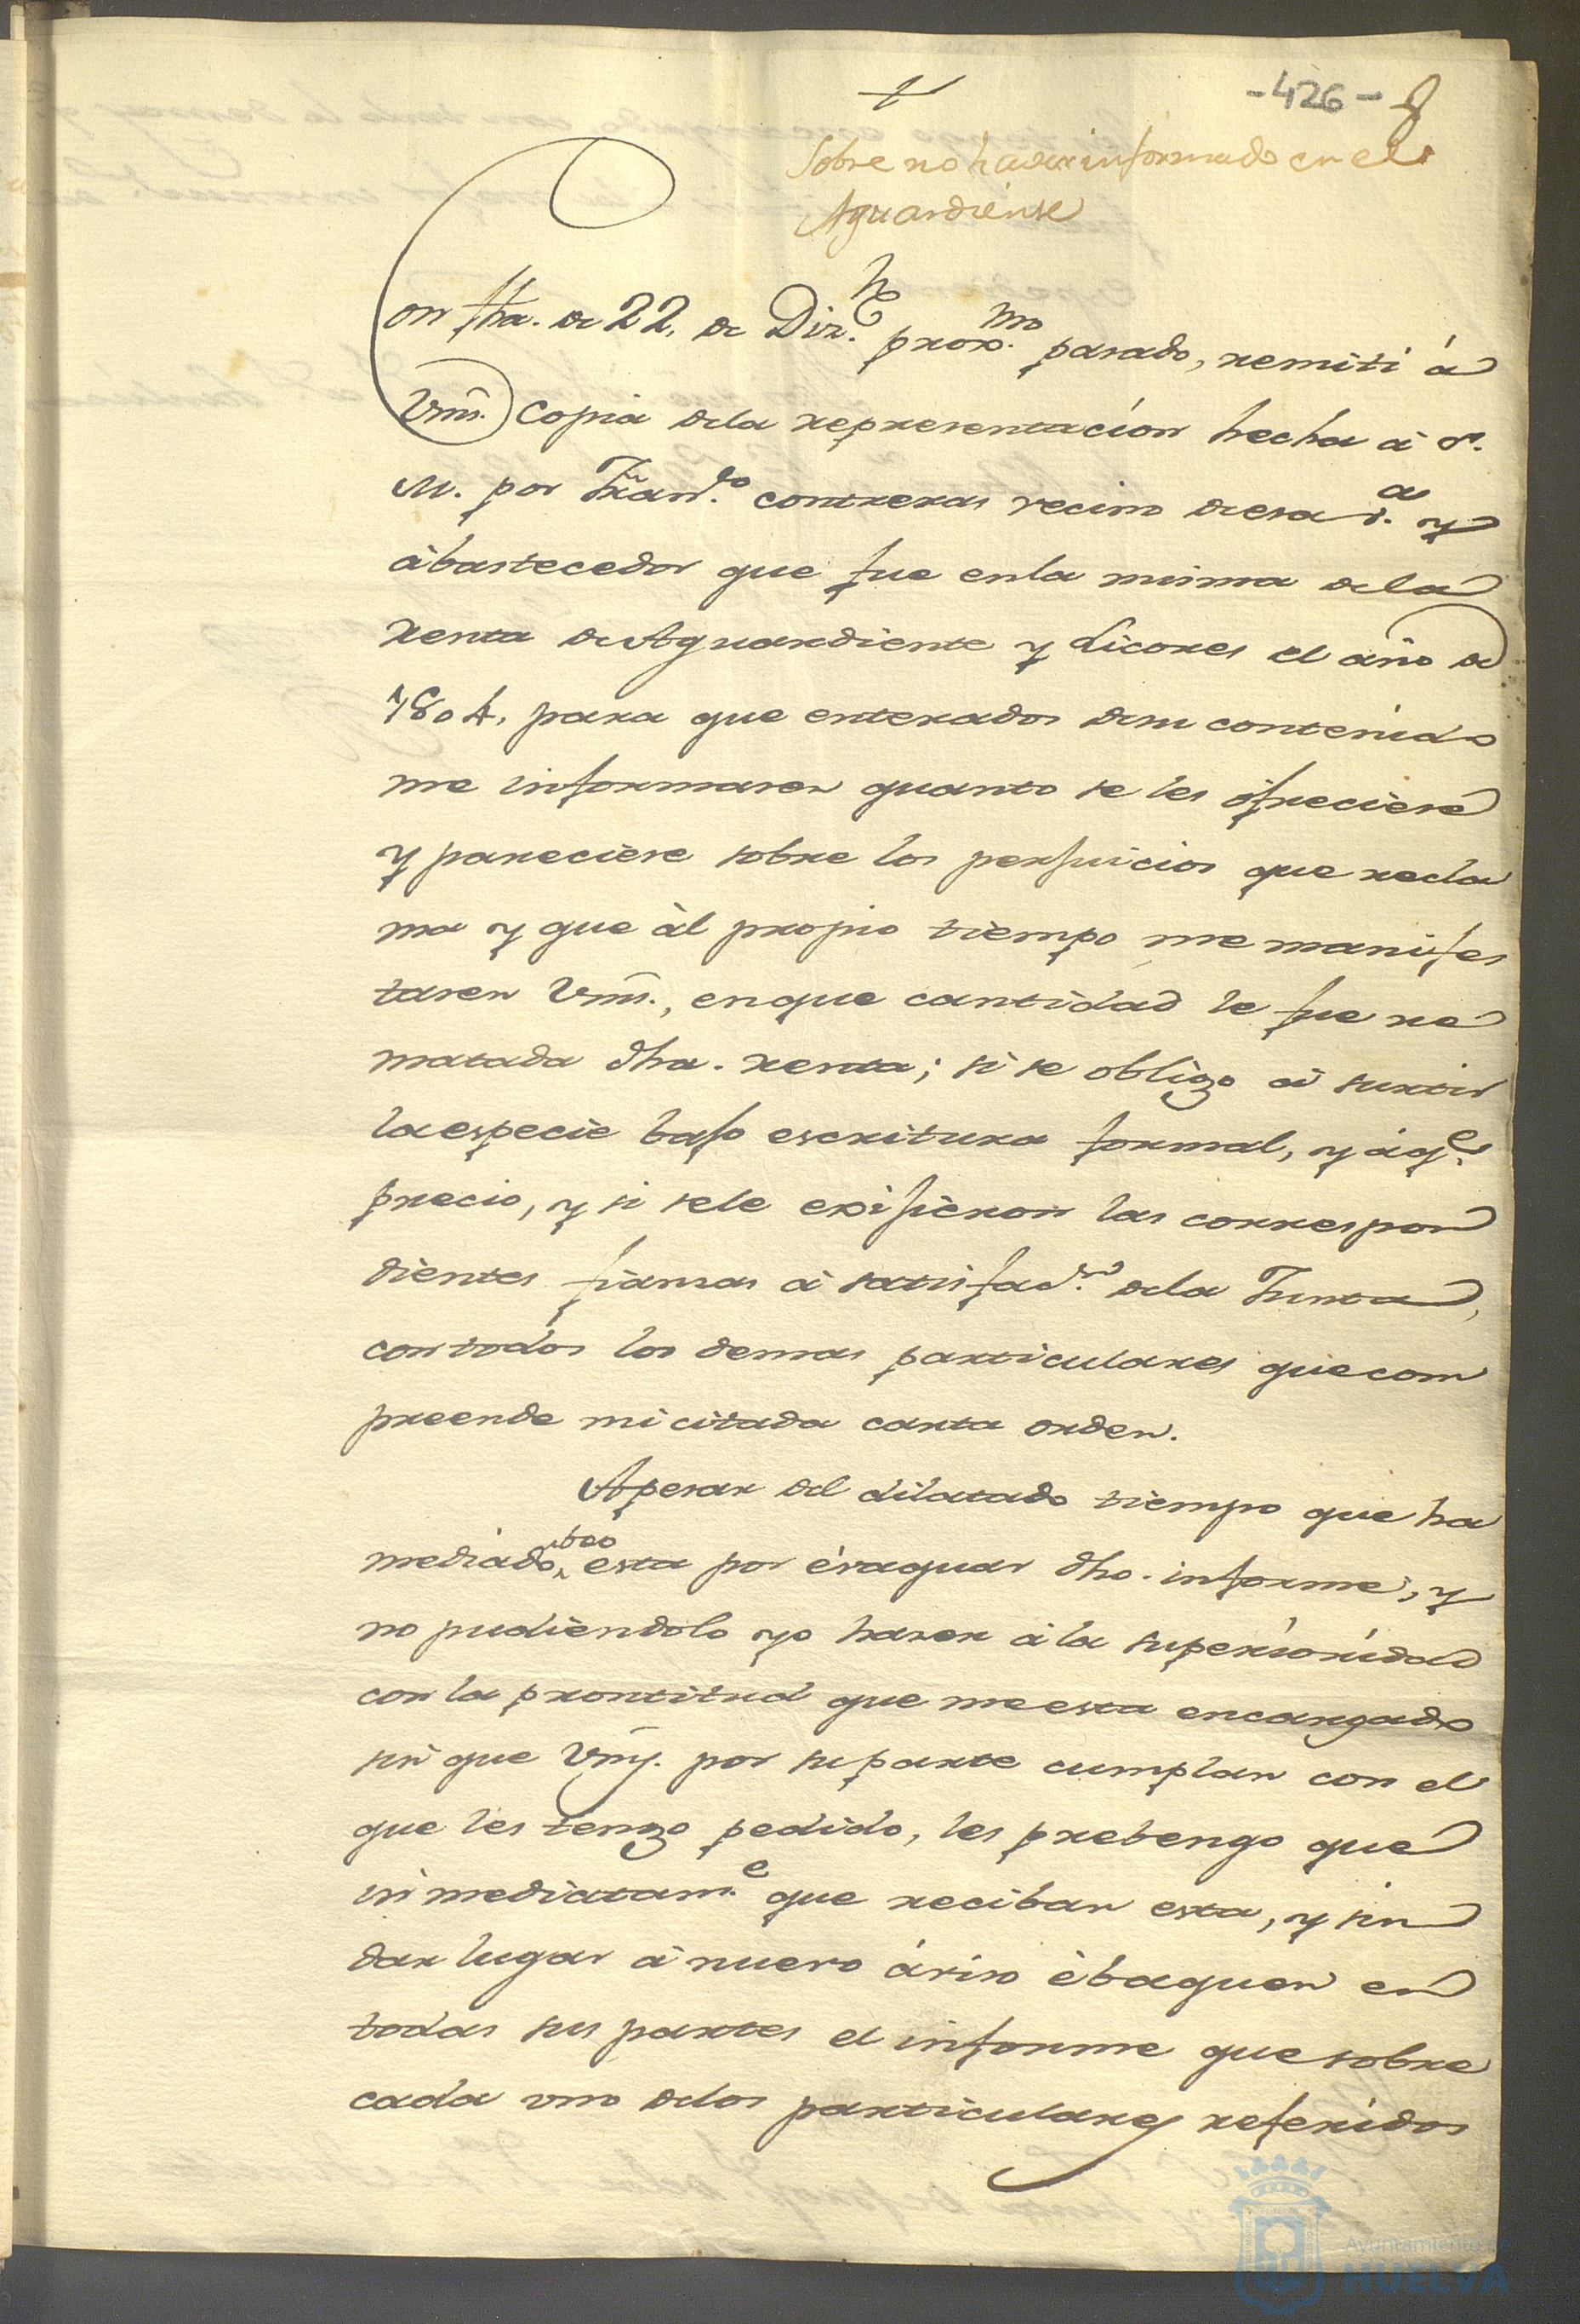 -426- 8
Sobre no haver informado en el
Aguardiente
Con fha. de 22. de Diz.e prox.mo pasado, remiti á
Vms. Copia dela representacion hecha á S.
M. por Fran.co contreras vecino de esa v.a y
ábastecedor que fue enla misma dela
renta de Aguardiente y Licores el año de
1804, para que enterados desu contenido
me informasen quanto se les ofreciese
y pareciese sobre los perjuicios que recla
ma y que àl propio tiempo me manifes
tasen Vms., enque cantidad le fue re
matada dha. renta; si se obligo á surtir
la especie bajo escritura formal, y áq.e
precio, y si sele exijieron las correspon
dientes fianzas á satisfac.on dela Junta,
contodos los demas particulares quecom
preende mi citada carta orden.
Apesar del dilatado tiempo que ha
mediado, esta por évaquar dho. informe, y
no pudiendolo yo hazer á la superioridad
con la prontitud que meesta encargado
sin que Vms. por su parte cumplan con el
que les tengo pedido, les prebengo que
inmediatam.e que reciban esta, y sin
dar lugar á nuevo áviso èbaquen en
todas sus partes el informe que sobre
cada uno delos particulares referidos
Ayuntamiento de
HUELVA